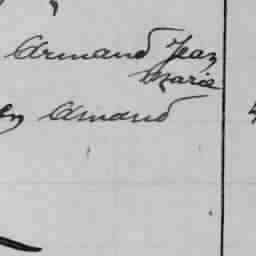 Armand Jean
Marie
Amand